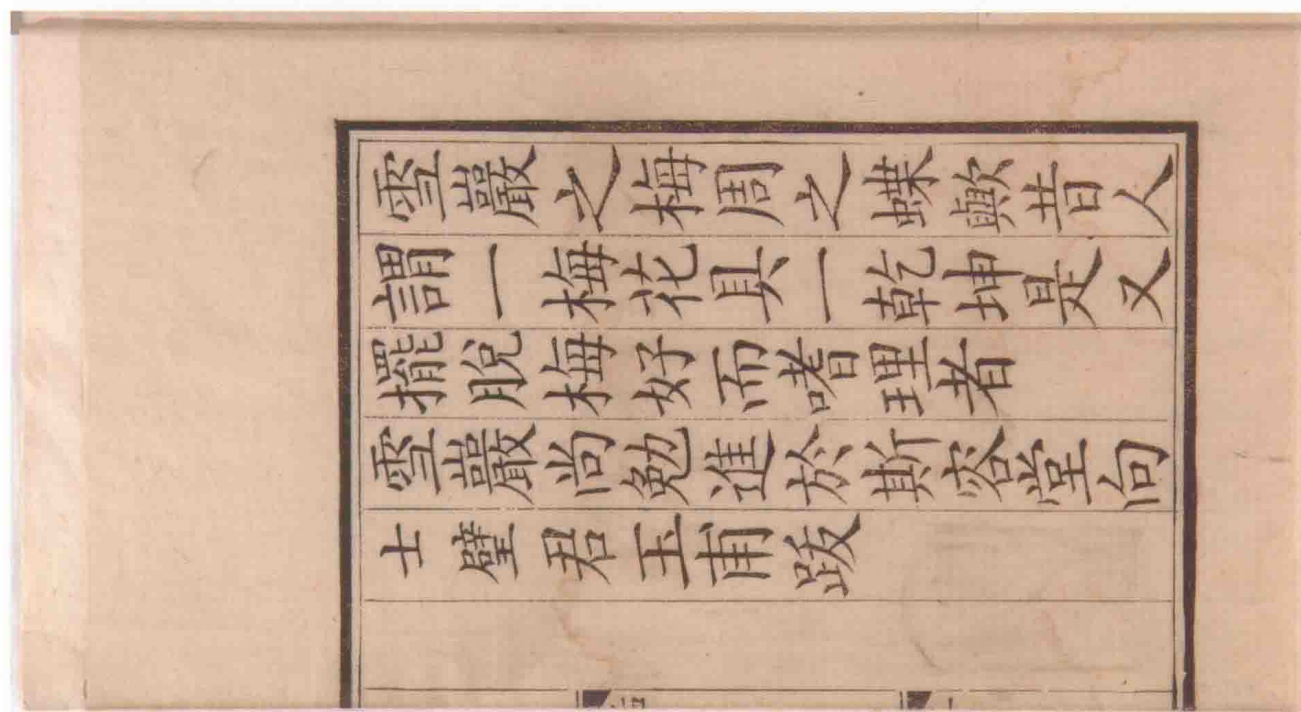 雪巖之梅周之蝶歟昔人
謂一梅花具一乾坤是又
擺脫梅好而嗜理者
雪巖尚勉進於斯容堂向
士璧君玉甫跋